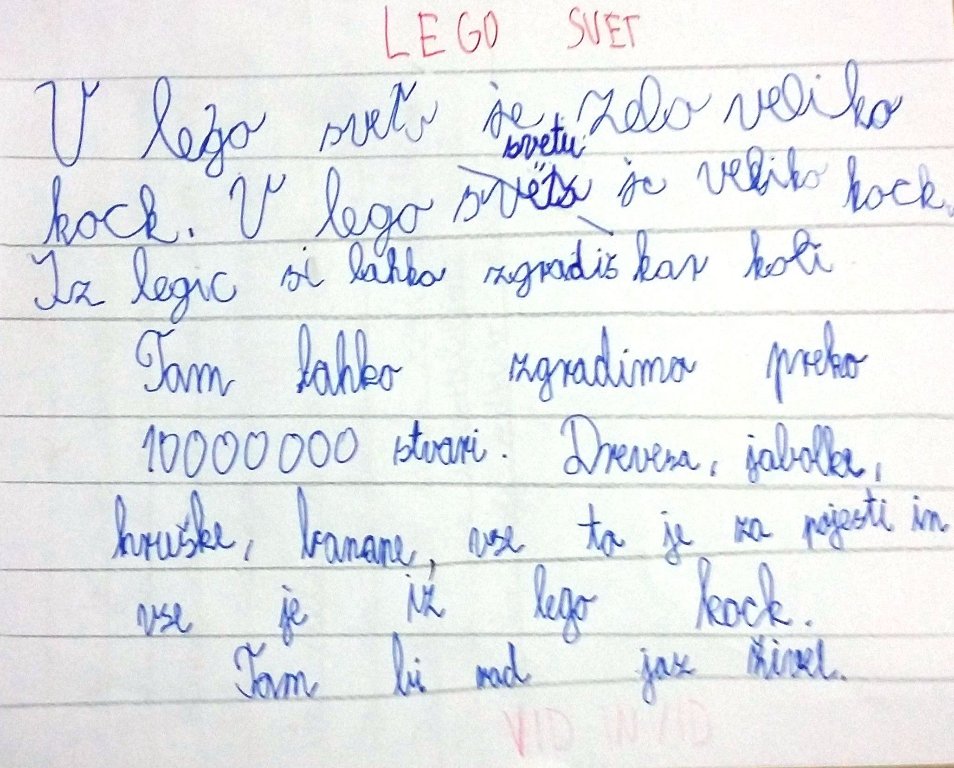 LEGO SVET
V lego svetu je zelo veliko
svetu
kock. V lego je veliko kock.
Iz legic si lahko zgradiš kar koli
Tam lahko zgradimo preko
10000000 stvari. Drevesa, jabolka,
hruške, banane, vse to je za pojesti in
vse je iz lego kock.
Tam bi rad jaz živel.
VID IN VID